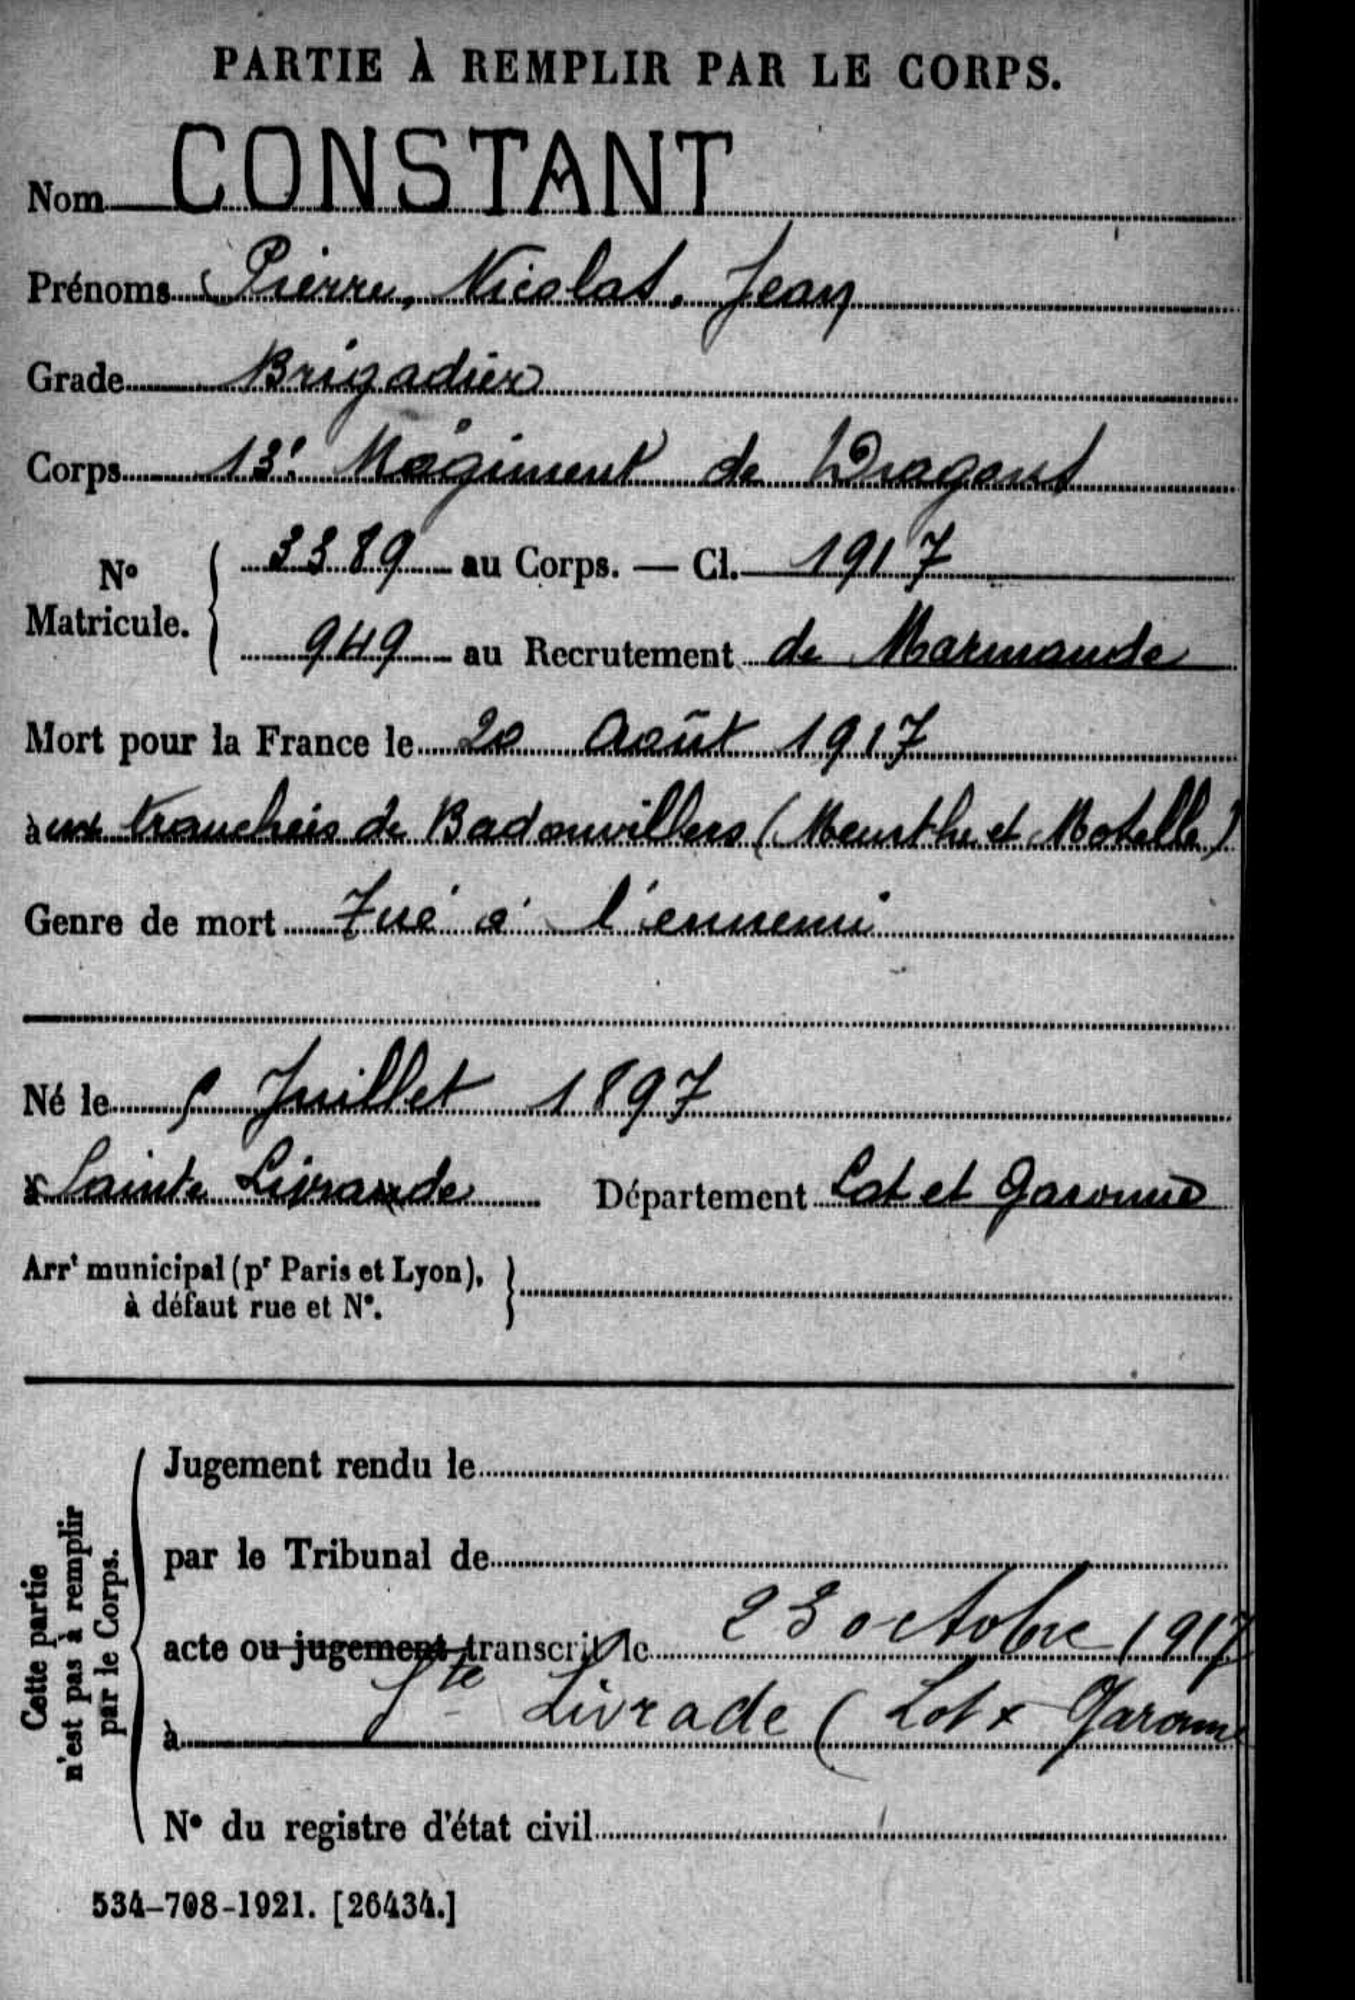 PARTIE À REMPLIR PAR LE CORPS.
Nom CONSTANT
Prénoms Pierre, Nicolas, Jean
Grade Brigadier
Corps 13e Régiment de Dragons
No Matricule. 3389 au Corps. — Cl. 1917
949 au Recrutement de Marmande
Mort pour la France le 20 Août 1917
aux tranchées de Badonvillers (Meurthe et Moselle)
Genre de mort Tué à l'ennemi
Né le 5 Juillet 1897
à Sainte Livrade Département Lot et Garonne
Arrt municipal (pr Paris et Lyon),
à défaut rue et N°.
Cette partie
n'est pas à remplir
par le Corps.
Jugement rendu le
par le Tribunal de
acte ou jugement transcrit le 23 octobre 1917
à Ste Livrade (Lot & Garonne
N° du registre d'état civil
534-708-1921. [26434.]